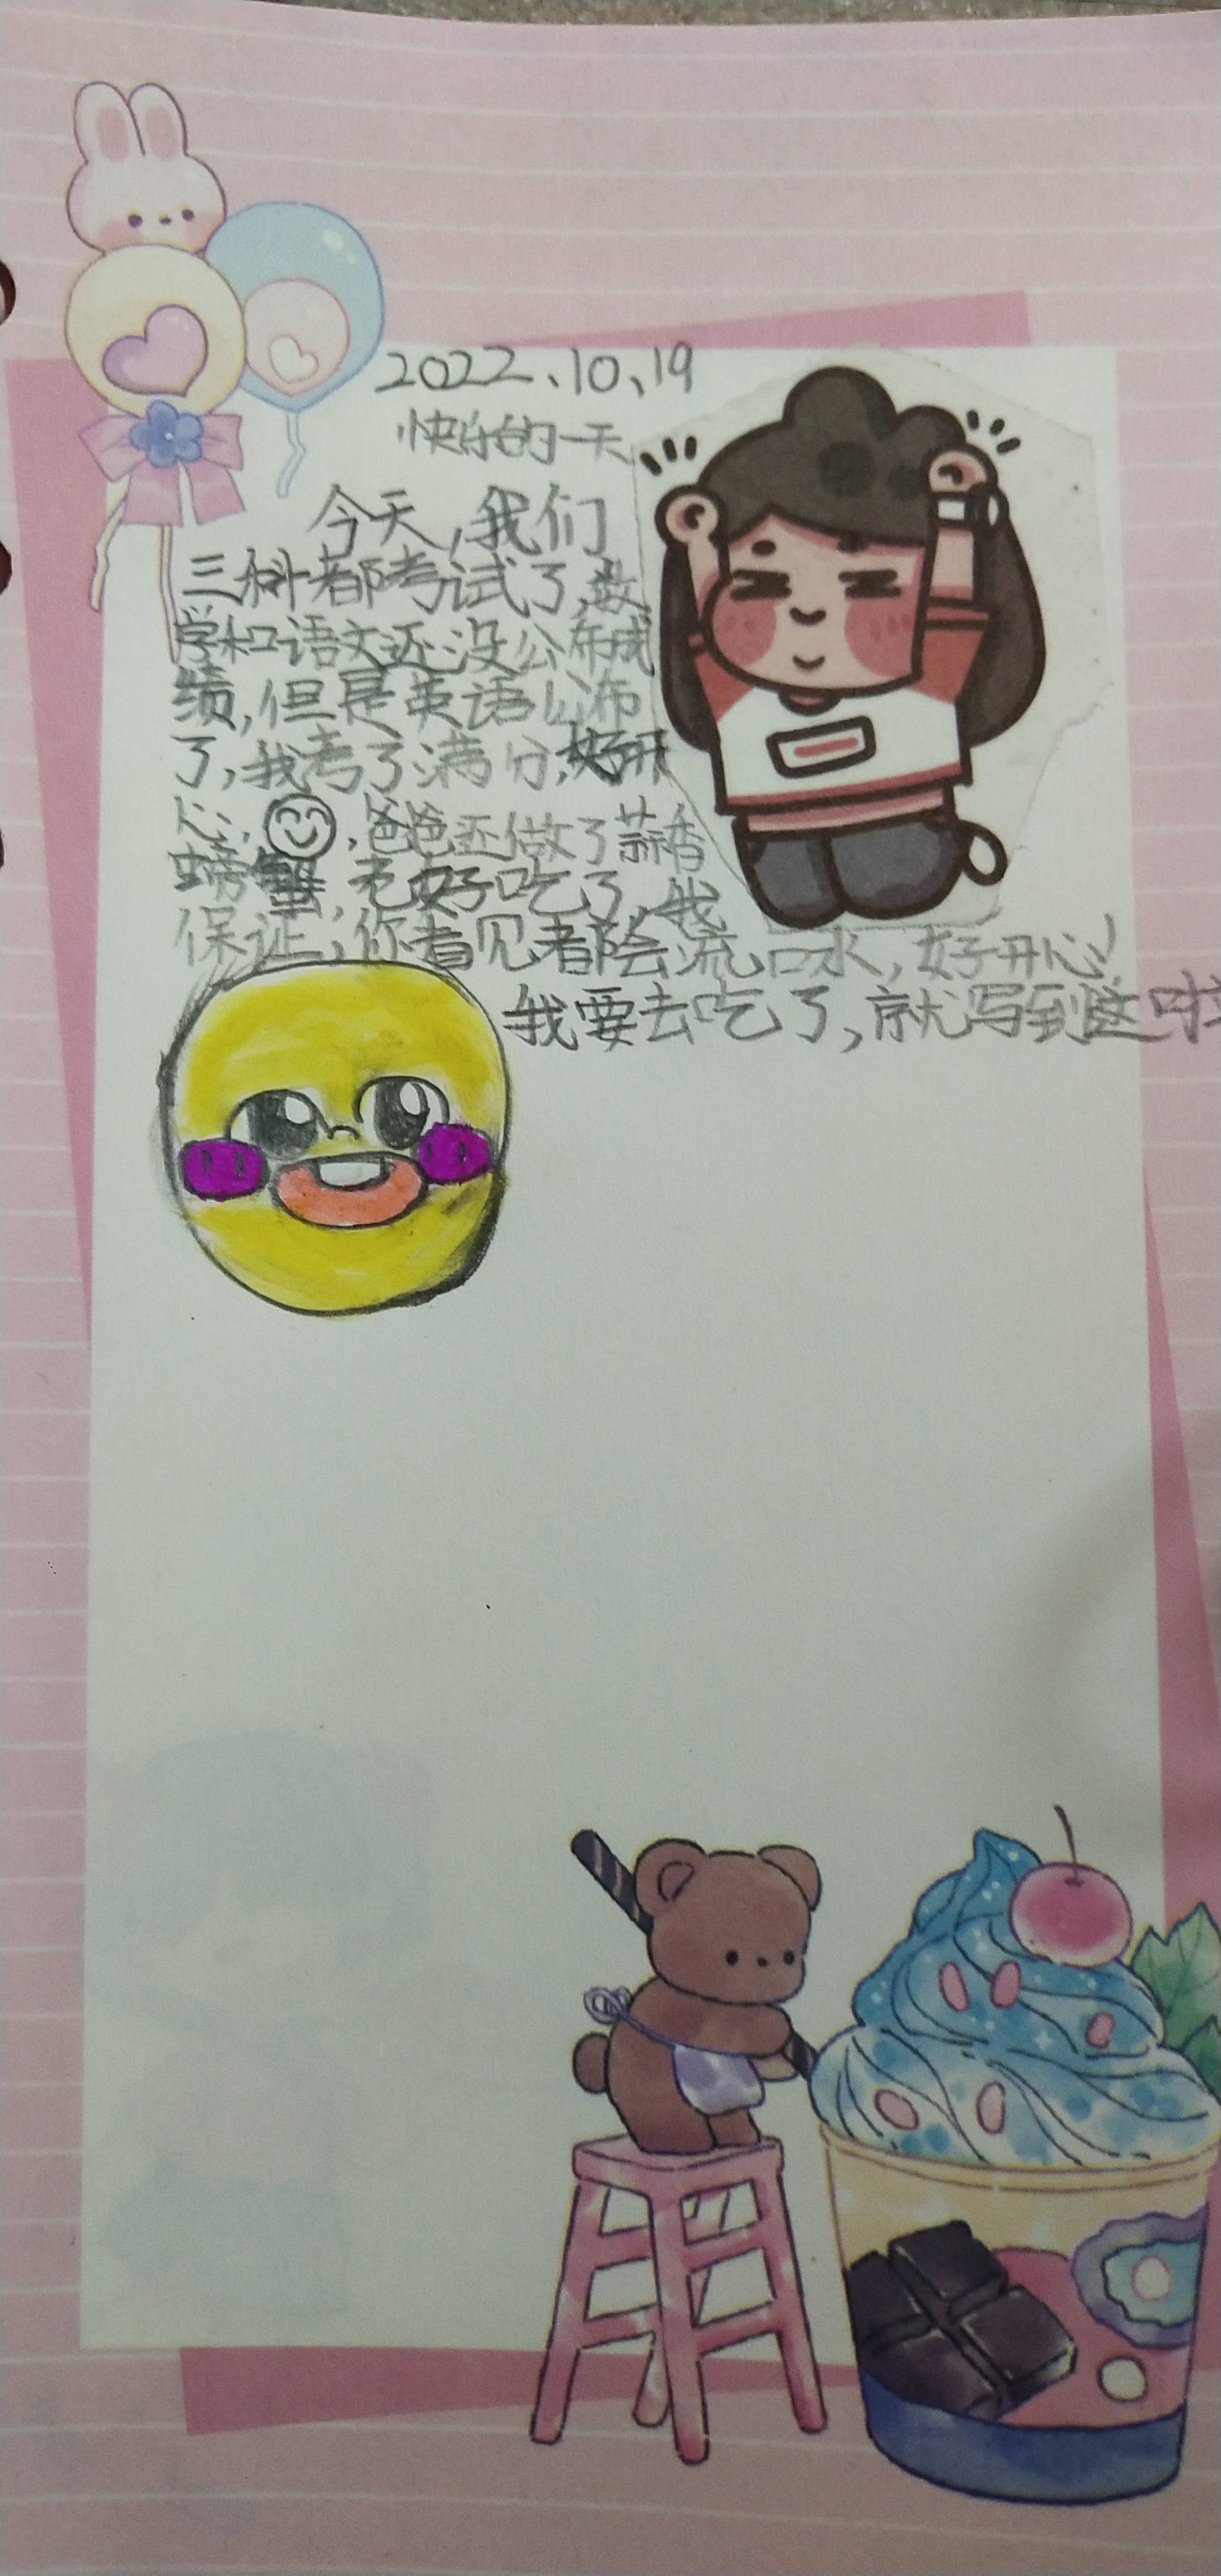 2022、10、19
快乐的一天
今天,我们
三科都考试了,数
学和语文还没公布成
绩,但是英语公布
了,我考了满分,好开
心,,爸爸还做了蒜香
螃蟹,老好吃了,我
保证,你看见者会流口水,好开心!
我要去吃了,就写到这啦